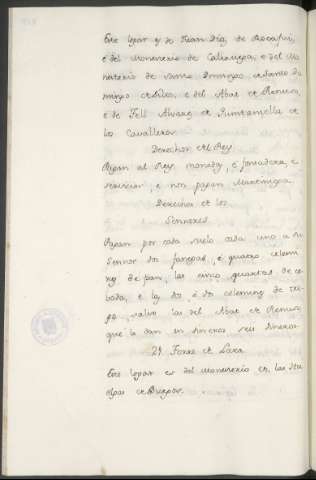 Este logar es de Juan Diaz de Rocafui,
e del Monesterio de Caleruega, e del Mo-
nesterio de Santo Domingo
de Silos, e del Abat de
e de Tell Alvarez et
los Cavalleros
Derechos del Rey
Pagan al Rey moneda, e fonsadera, e
servicios, e non pagan Martiniega
Derechos de los
Sennores
Pagan por cada suelo cada uno a su
Sennor dos fanegas, e quatro celemi-
nes de pan, las cinco quartas de ce-
bada, e los dos celemines de tri-
go, salvo los del Abat de
que le dan en dineros seis dineros
Torre de Lara
Este logar es del Monesterio de las Huel-
gas de Burgos.